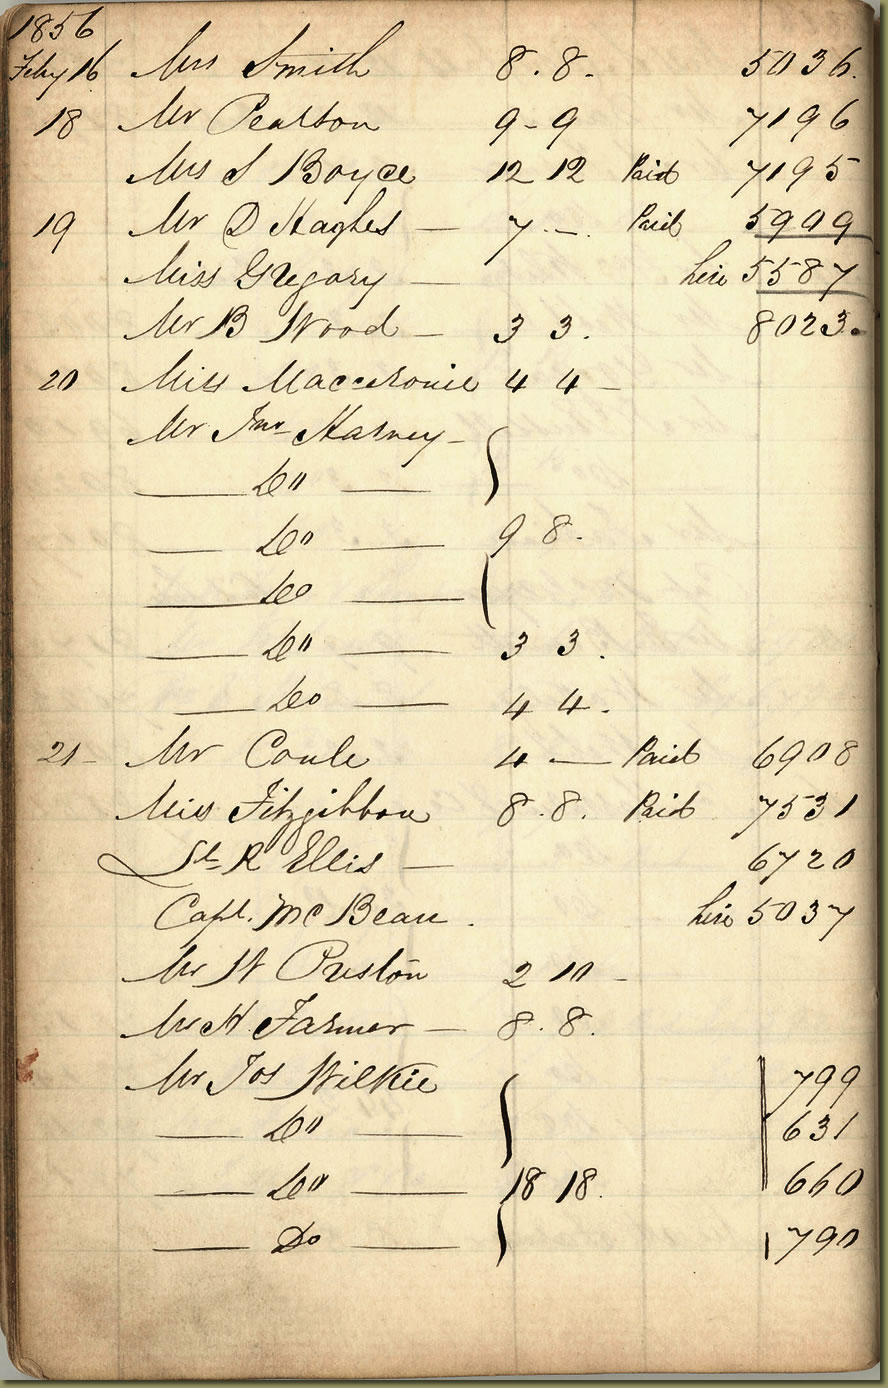 1856
Feby 16 Mrs Smith 8. 8. 5036.
18 Mr Pearson 9-9 7196
Mrs S Boyce 12 12 Paid 7195
19 Mr D Haghes — 7 - . Paid 5909
Miss Gregory — hire 5587
Mr B Wood — 3 3. 8023.
20 Miss Maccaronie 4 4 —
Mr Jnr Harvey —
— Do —
— Do — 9 8.
— Do —
— Do — 3 3 .
— Do — 4 4 .
21 - Mr Coule 4 — Paid 6908
Miss Fitzgibbon 8. 8. Paid 7531
St. R Ellis — 6720
Capt. McBean . hire 5037
Mr W Preston 2 10 -
Mr H Farmer — 8. 8.
Mr Jos Wilkie 799
— Do — 631
— Do — 18 18. 660
— Do — 1790